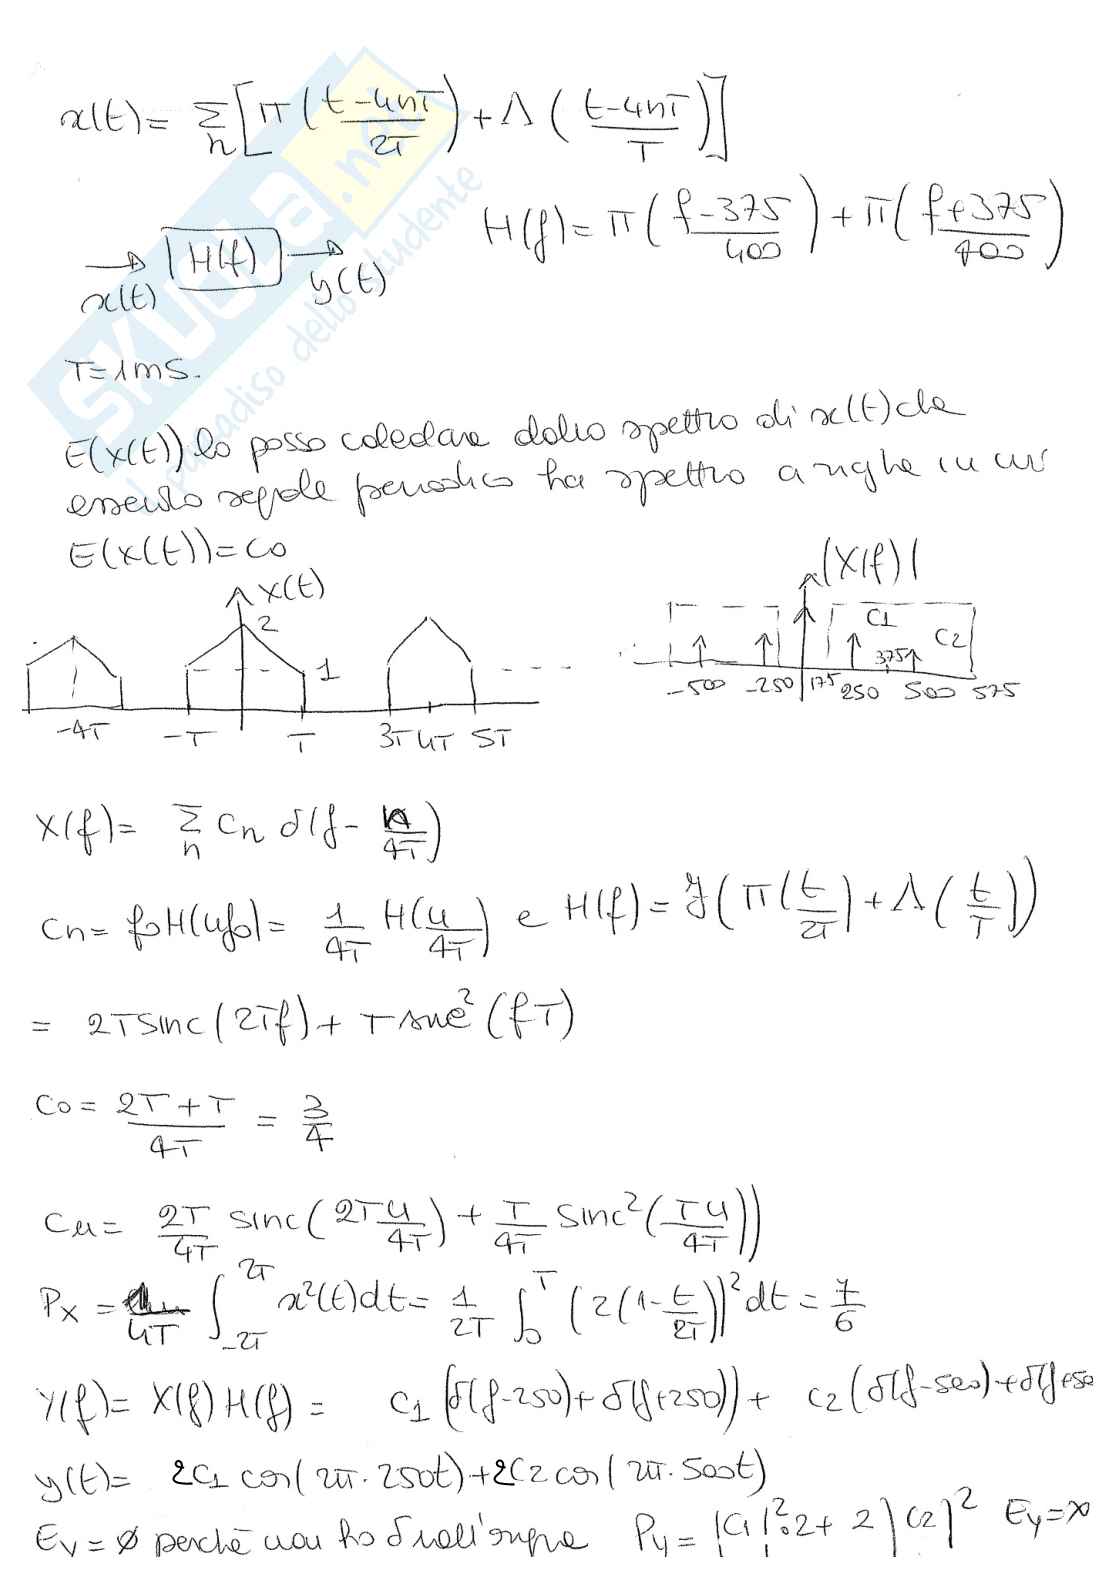 x(t) = Σn [ π( (t-4nT)/2T ) + Λ( (t-4nT)/T ) ]
H(f) = π( (f-375)/400 ) + π( (f+375)/400 )
x(t) → H(f) → y(t)
T=1ms.
E(x(t)) lo posso calcolare dallo spettro di x(t) che
essendo segnale periodico ha spettro a righe in cui
E(x(t)) = c0
x(t)
2
1
-4T -T T 3T 4T 5T
|X(f)|
C1
C2
375
-500 -250 175 250 500 575
X(f) = Σn Cn δ(f - n/4T)
Cn = f0H(nf0) = 1/4T H(n/4T) e H(f) = F( π(t/2T) + Λ(t/T) )
= 2T sinc(2Tf) + T sinc²(fT)
C0 = (2T+T)/4T = 3/4
Cn = 2T/4T sinc(2Tn/4T) + T/4T sinc²(Tn/4T))
Px = 1/4T ∫_-2T^2T x²(t)dt = 1/2T ∫_0^T (2(1-t/2T))² dt = 7/6
Y(f) = X(f) H(f) = C1 (δ(f-250) + δ(f+250)) + C2 (δ(f-500) + δ(f+50
y(t) = 2C1 cos(2π·250t) + 2C2 cos(2π·500t)
Ey = ∅ perchè non ho δ nell'origine Py = |C1|²·2 + 2|C2|² Ey = ∞
SKUOLA.net
il paradiso dello studente